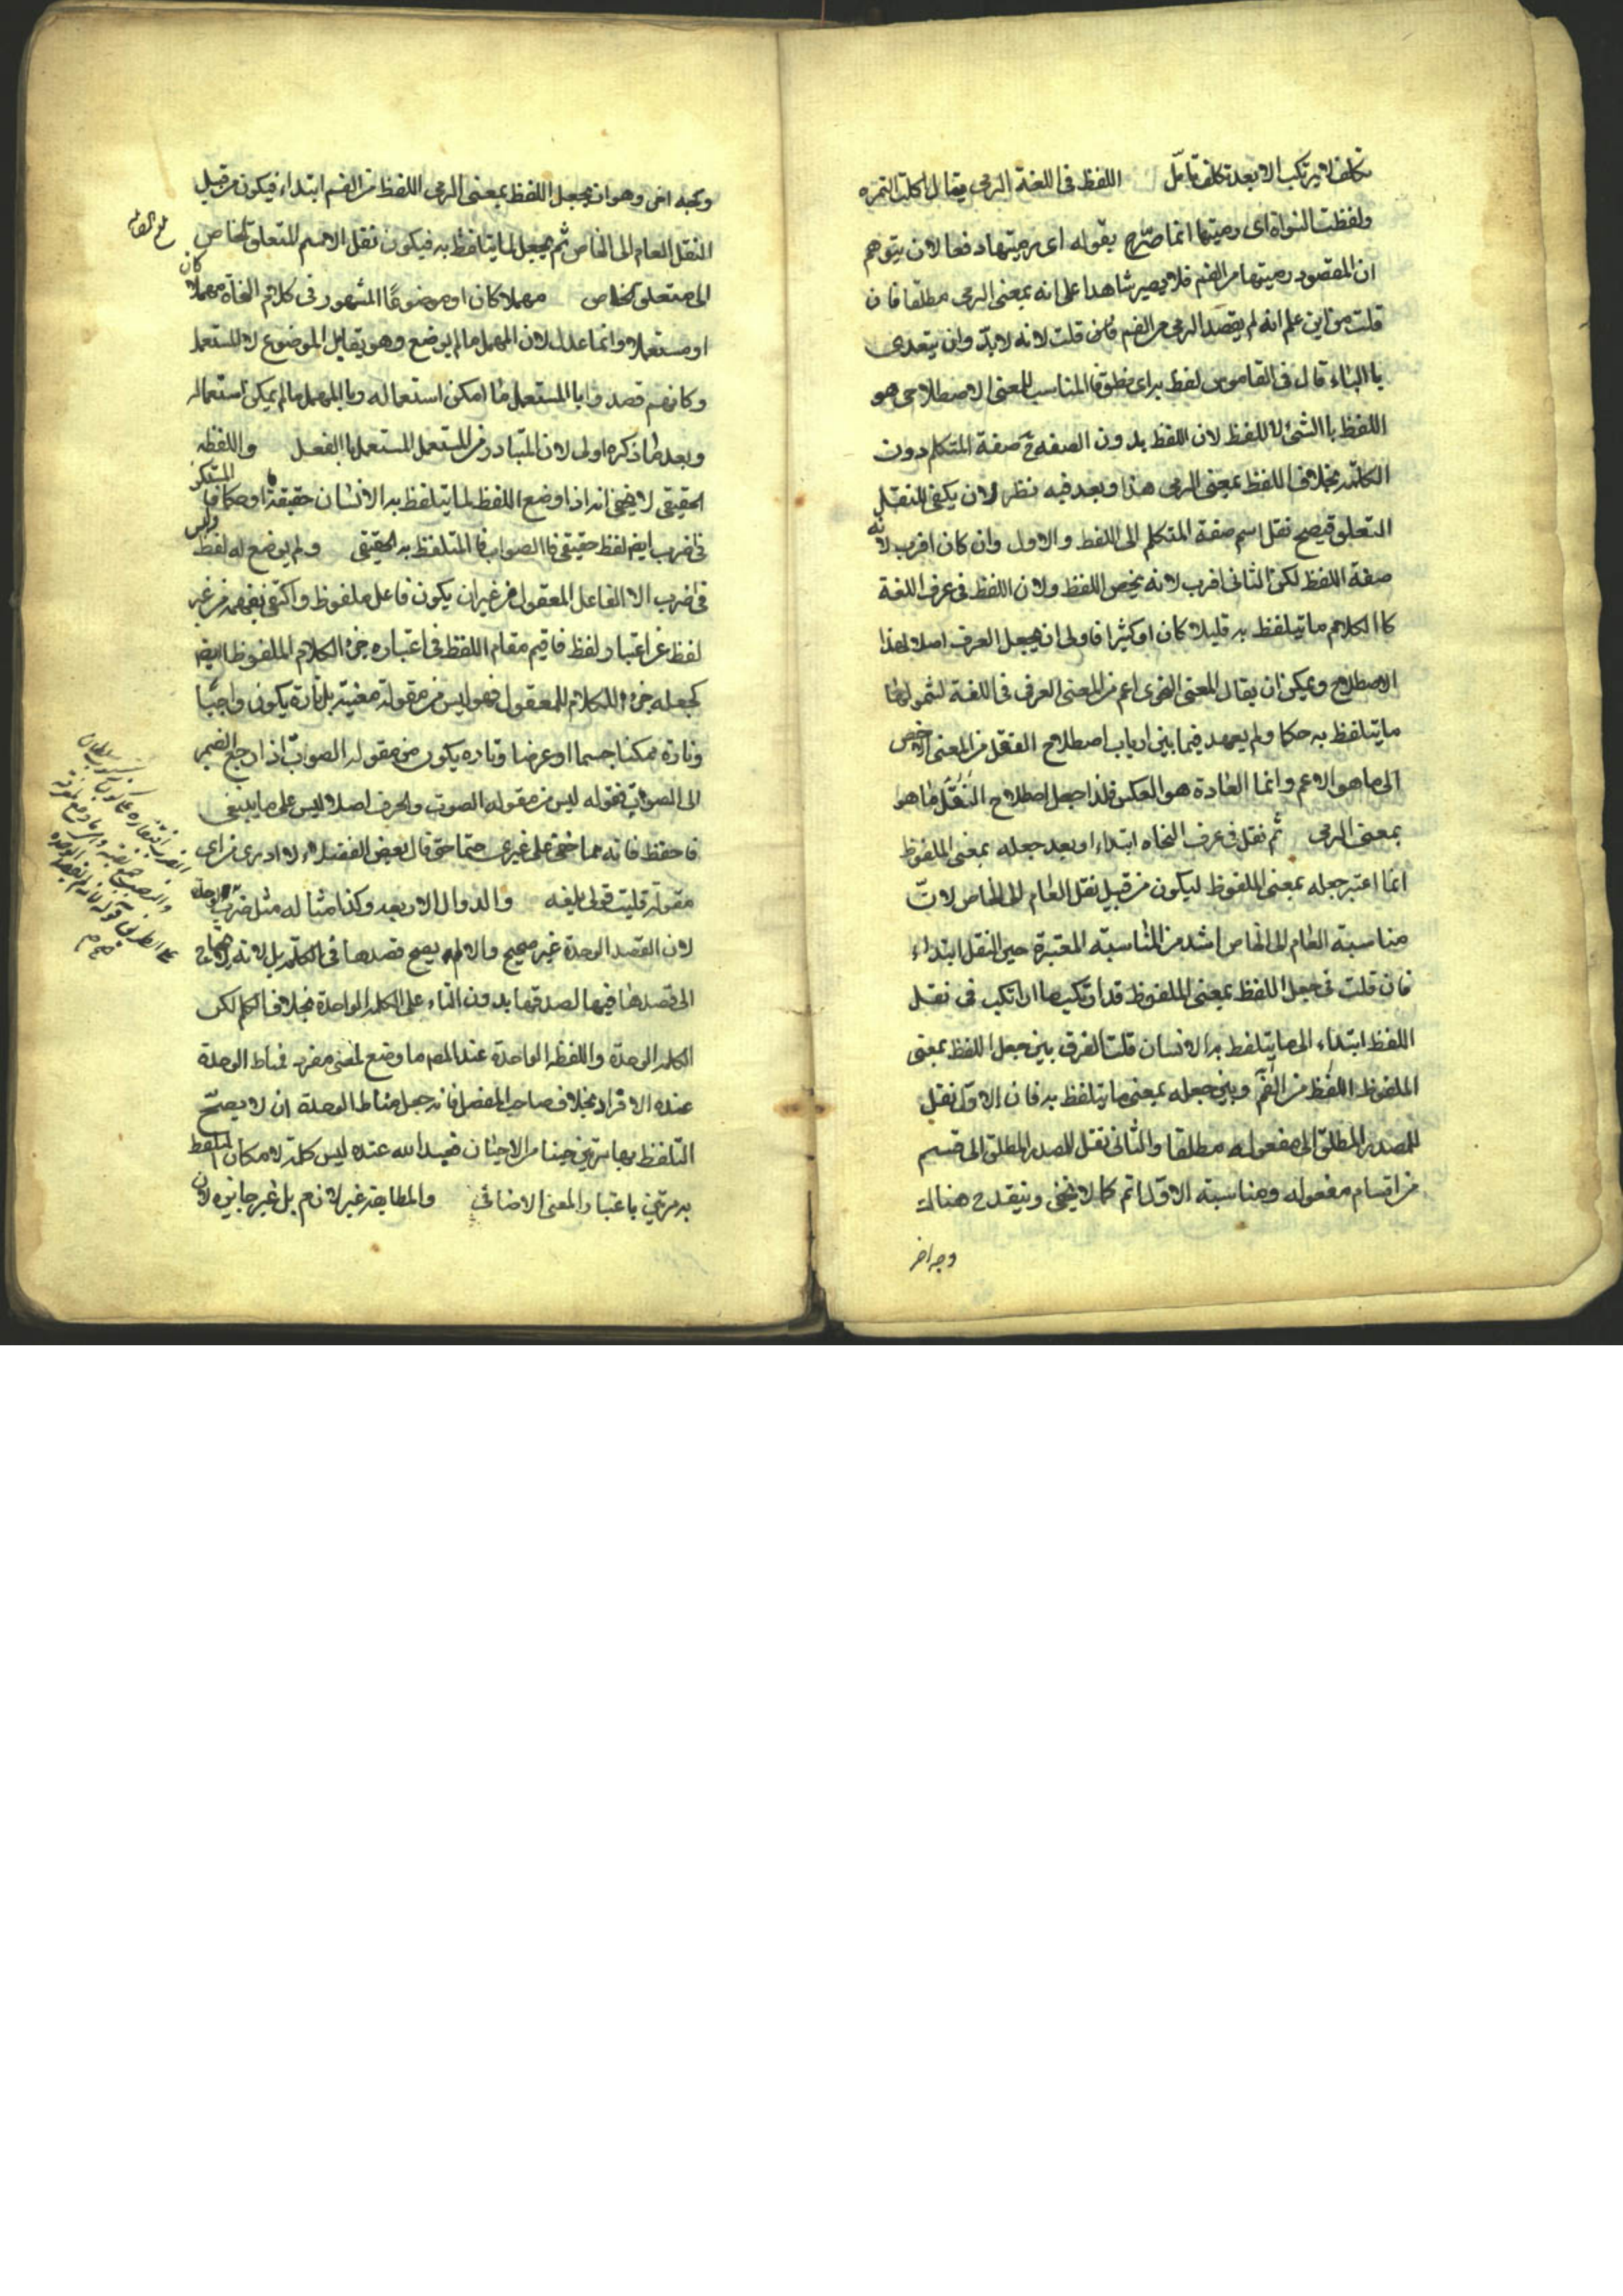 تكلف لا يرتكب الا بعد تكلف تامل اللفظ فى اللغة الرمى يقال اكلت التمره
ولفظت النواة اى رميتها انما صرّح بقوله اى رميتها دفعا لان يتوهم
ان المقصود رميتها من الفم فلا يصير شاهدا على انه بمعنى الرمى مطلقا فان
قلت من اين علم انه لم يقصد الرمى من الفم قلت لانه لا بدّ وان يتعدى
باالباء قال فى القاموس لفظ به اى نطق فالمناسب للمعنى الاصطلاحى هو
اللفظ باالشئ لا اللفظ لان اللفظ بدون الصفه صفة المتكلم دون
الكلمة بخلاف اللفظ بمعنى الرمى هذا وبعد فيه نظر لان يكفى للنقل
التعلق فيصح نقل اسم صفة المتكلم الى اللفظ والاول وان كان اقرب لانه
صفة اللفظ لكن الثانى اقرب لانه يخص اللفظ ولان اللفظ فى عرف اللغة
كاالكلام ما يتلفظ به قليلا كان او كثيرا فاولى ان يجعل العرف اصلا لهذا
الاصطلاح ويمكن ان يقال المعنى اللغوى اعم من المعنى العرفى فى اللغة لشمولها
ما يتلفظ به حكما ولم يعهد فيما بين ارباب اصطلاح النقل من المعنى الاخص
الى ما هو الاعم وانما العادة هو العكس فلذا جعل اصطلاح النقل ما هو
بمعنى الرمى ثم نقل فى عرف النحاه ابتداء او بعد جعله بمعنى الملفوظ
انما اعتبر جعله بمعنى الملفوظ ليكون من قبيل نقل العام الى الخاص لانّ
مناسبة العام الى الخاص اشد من المناسبة المعتبرة حين النقل ابتداء
فان قلت فى جعل اللفظ بمعنى الملفوظ قد ارتكب ما ارتكب فى نقل
اللفظ ابتداء الى ما يتلفظ به الانسان قلت الفرق بين جعل اللفظ بمعنى
الملفوظ اللفظ من الفم وبين جعله بمعنى ما يتلفظ به فان الاول نقل
للمصدر المطلق الى مفعوله مطلقا والثانى نقل للمصدر المطلق الى قسم
من اقسام مفعوله ومناسبة الاول اتم كما لا يخفى وينقدح هناك
وجه اخر
وجه اخر وهو ان يجعل اللفظ بمعنى الرمى اللفظ من الفم ابتداء فيكون من قبيل
النقل العام الى الخاص ثم يجعل لما يتلفظ به فيكون نقل الاسم المتعلق الخاص
الى متعلق الخاص مهملا كان او موضوعًا المشهور فى كلام النحاة مهملا كان
او مستعملا وانما عدل لان المهمل ما لم يوضع وهو يقابل الموضوع لا المستعمل
وكانهم قصدوا باالمستعمل ما امكن استعماله وباالمهمل ما لم يمكن استعماله
وبعد ما ذكره اولى لان المتبادر من المستعمل المستعمل باالفعل واللفظ
الحقيقى لا يخفى انه اذا وضع اللفظ لما يتلفظ به الانسان حقيقة او حكما فالمستكن
فى اضرب ايضا لفظ حقيقى فاالصواب فاالمتلفظ به الحقيقى ولم يوضع له لفظ وليس
فى اضرب الا الفاعل المعقول من غير ان يكون فاعل ملفوظ واكتفى بفهمه من غير
لفظ عن اعتبار لفظ فاقيم مقام اللفظ فى اعتباره جزء الكلام الملفوظ ايضا
كجعله جزء الكلام المعقول فهو ليس من مقولة معينة بل تارة يكون واجبًا
وتارة ممكنا جسما او عرضا وتاره يكون من مقوله الصوت اذا رجع الضمير
الى الصوت فقوله ليس من مقوله الصوت والحرف اصلا ليس على ما ينبغى
فاحفظ فانه مما خفى على غيرى حتما حتى قال بعض الفضلاء لا ادرى من اى
مقولة قلت قولى بلغه والدوال الاربعه وكذا مثاله مثل ضرب
لان القصد الوحدة غير صحيح والا لم يصح قصدها فى الكلمة بل لانه لا حاجة
الى قصدها فيها لصدقها بدون التاء على الكلمة الواحدة بخلاف الكلم لكن
الكلمة الوحدة واللفظه الواحدة عند المص ما وضع لمعنى مفرد فمناط الوحدة
عنده الافراد بخلاف صاحب المفصل فانه جعل مناط الوحدة ان لا يصحّ
التلفظ بها مرتين حينا من الاحيان فعبد الله عنده ليس كلمة لامكان التلفظ
به مرتين باعتبار المعنى الاضافى والمطابقة غير لازم بل غير جايزه لان